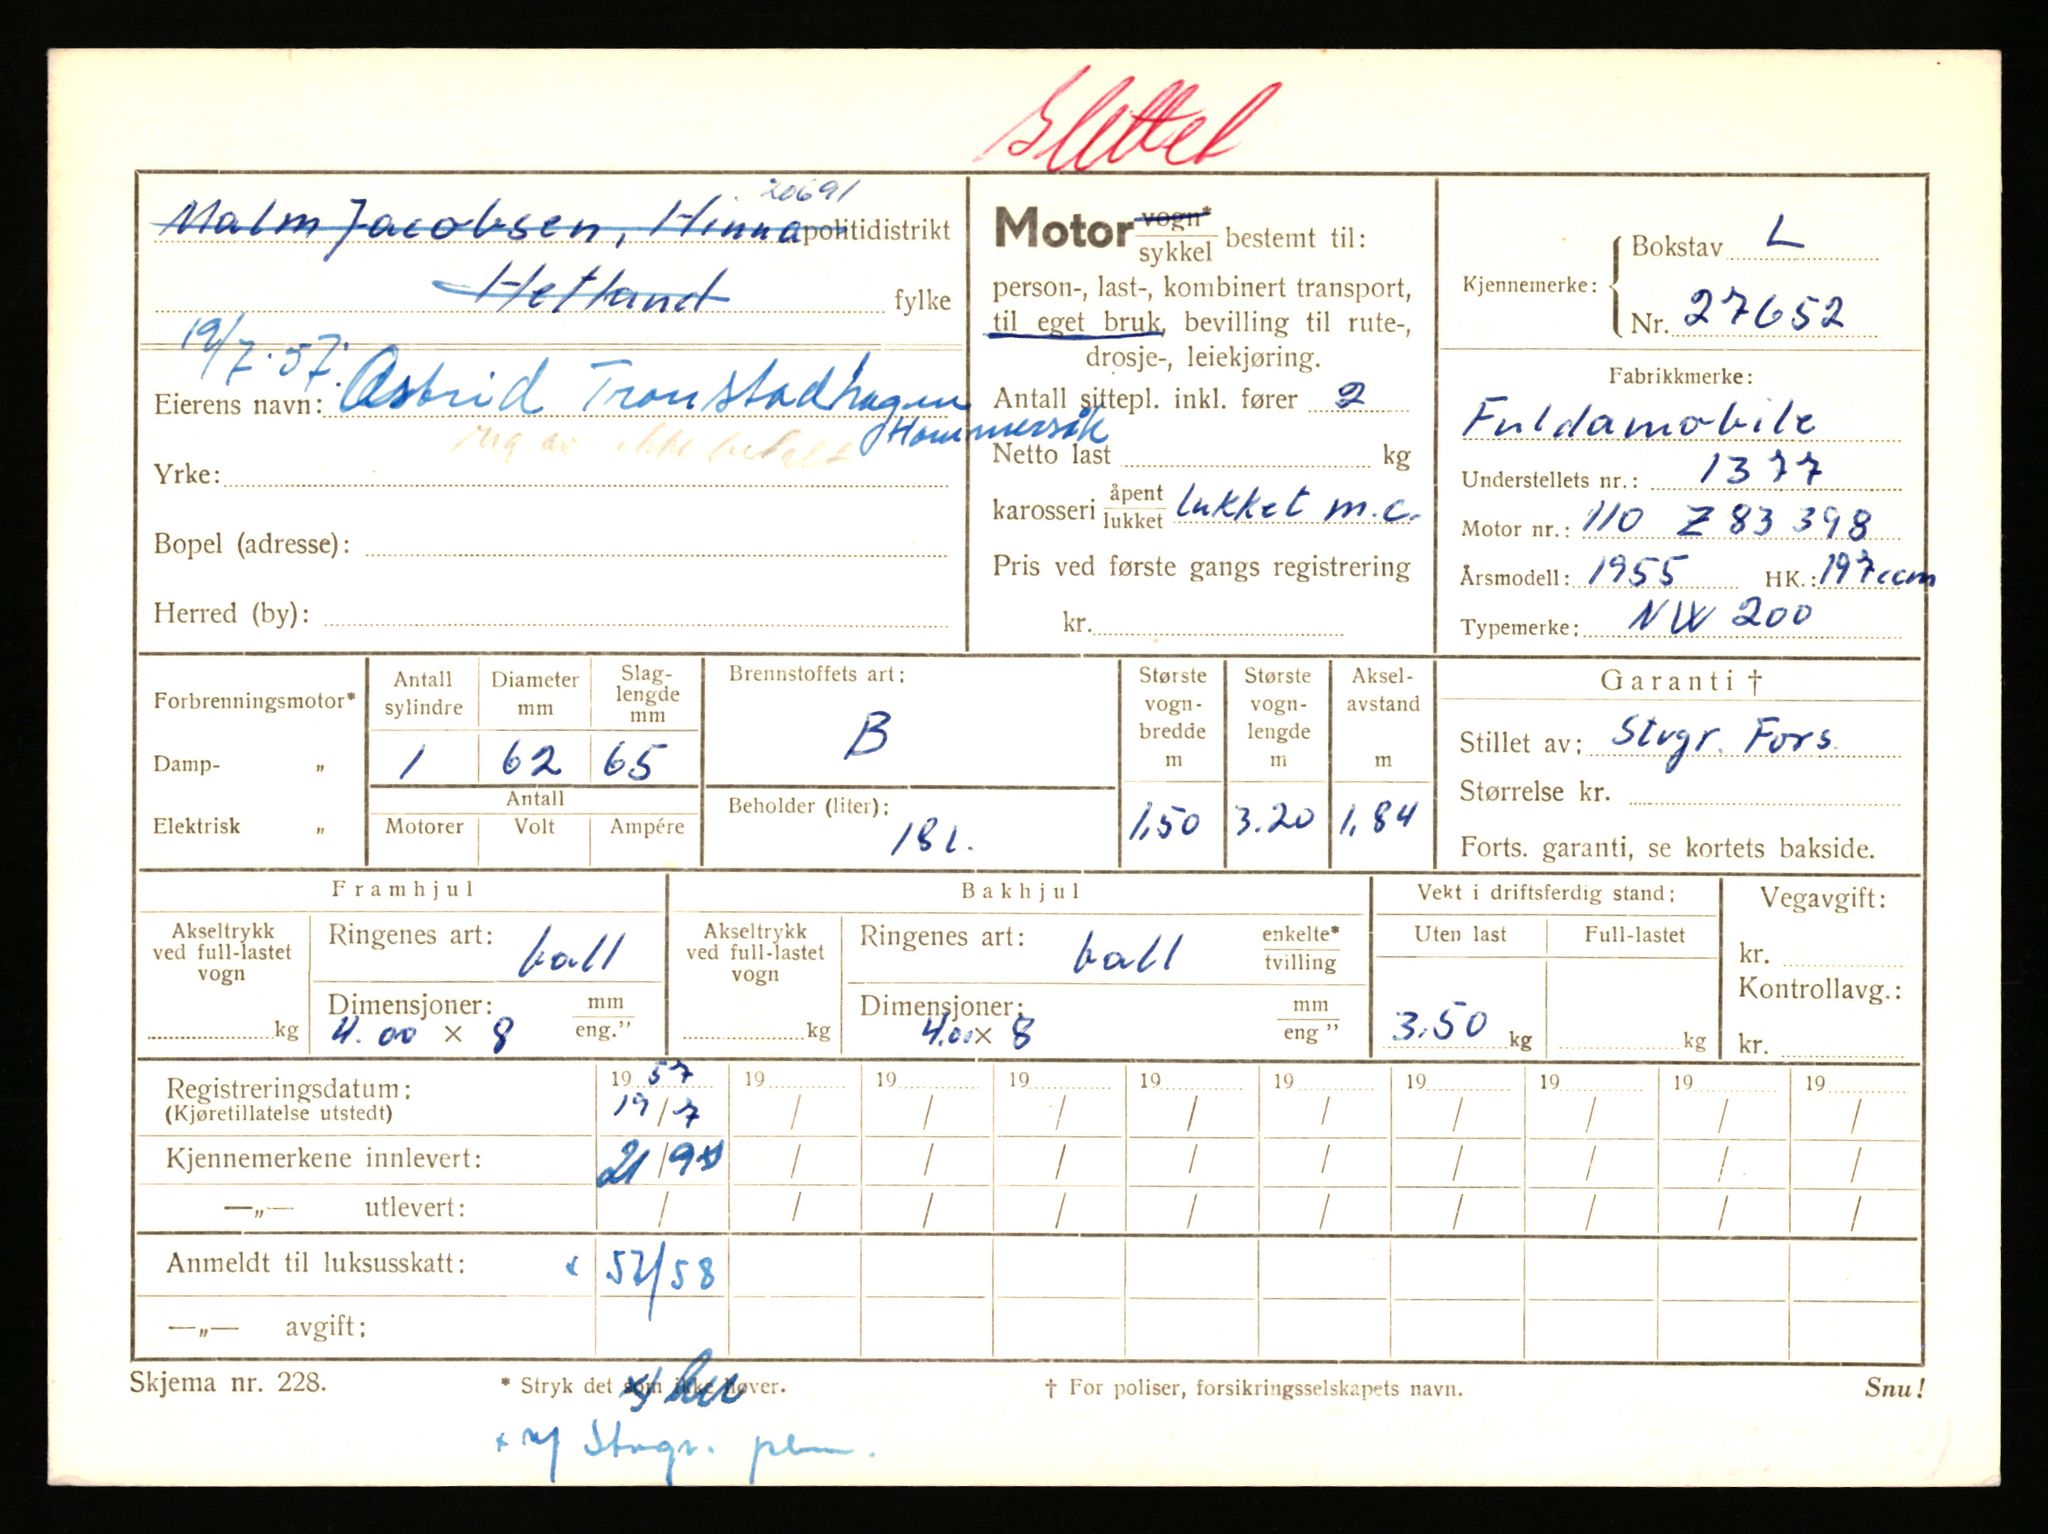 Slettet
20691
Malm Jacobsen, Hinna politidistrikt
Hetland fylke
19/7.57.
Eierens navn: Astrid Tronstadhagen
Hommersåk
Yrke:
Bopel (adresse):
Herred (by):
Motor vogn*/sykkel bestemt til:
person-, last-, kombinert transport,
til eget bruk, bevilling til rute-,
drosje-, leiekjøring.
Antall sittepl. inkl. fører 2
Netto last kg
karosseri åpent/lukket lukket m.c.
Pris ved første gangs registrering
kr.
Kjennemerke: Bokstav L
Nr. 27652
Fabrikkmerke:
Fuldamobile
Understellets nr.: 1377
Motor nr.: 110 Z 83398
Årsmodell: 1955 HK.: 197ccm
Typemerke: NW 200
Forbrenningsmotor*
Damp- „
Elektrisk „
Antall sylindre
1
Diameter mm
62
Slag-lengde mm
65
Antall
Motorer Volt Ampére
Brennstoffets art:
B
Beholder (liter):
18 l.
Største vogn-bredde m
1,50
Største vogn-lengde m
3.20
Aksel-avstand m
1,84
Garanti †
Stillet av: Stvgr. Fors.
Størrelse kr.
Forts. garanti, se kortets bakside.
Framhjul
Akseltrykk ved full-lastet vogn
kg
Ringenes art: ball
Dimensjoner: mm/eng.”
4.00 × 8
Bakhjul
Akseltrykk ved full-lastet vogn
kg
Ringenes art: ball enkelte*/tvilling
Dimensjoner: mm/eng”
4.00 × 8
Vekt i driftsferdig stand:
Uten last Full-lastet
3.50 kg kg
Vegavgift:
kr.
Kontrollavg.:
kr.
Registreringsdatum: 19 57 19 19 19 19 19 19 19 19 19
(Kjøretillatelse utstedt) 19/7 / / / / / / / / /
Kjennemerkene innlevert: 21/9 / / / / / / / / /
—„— utlevert: / / / / / / / / / /
Anmeldt til luksusskatt: × 57/58
—„— avgift:
Skjema nr. 228. * Stryk det som ikke høver. † For poliser, forsikringsselskapets navn. Snu!
× Stvgr.